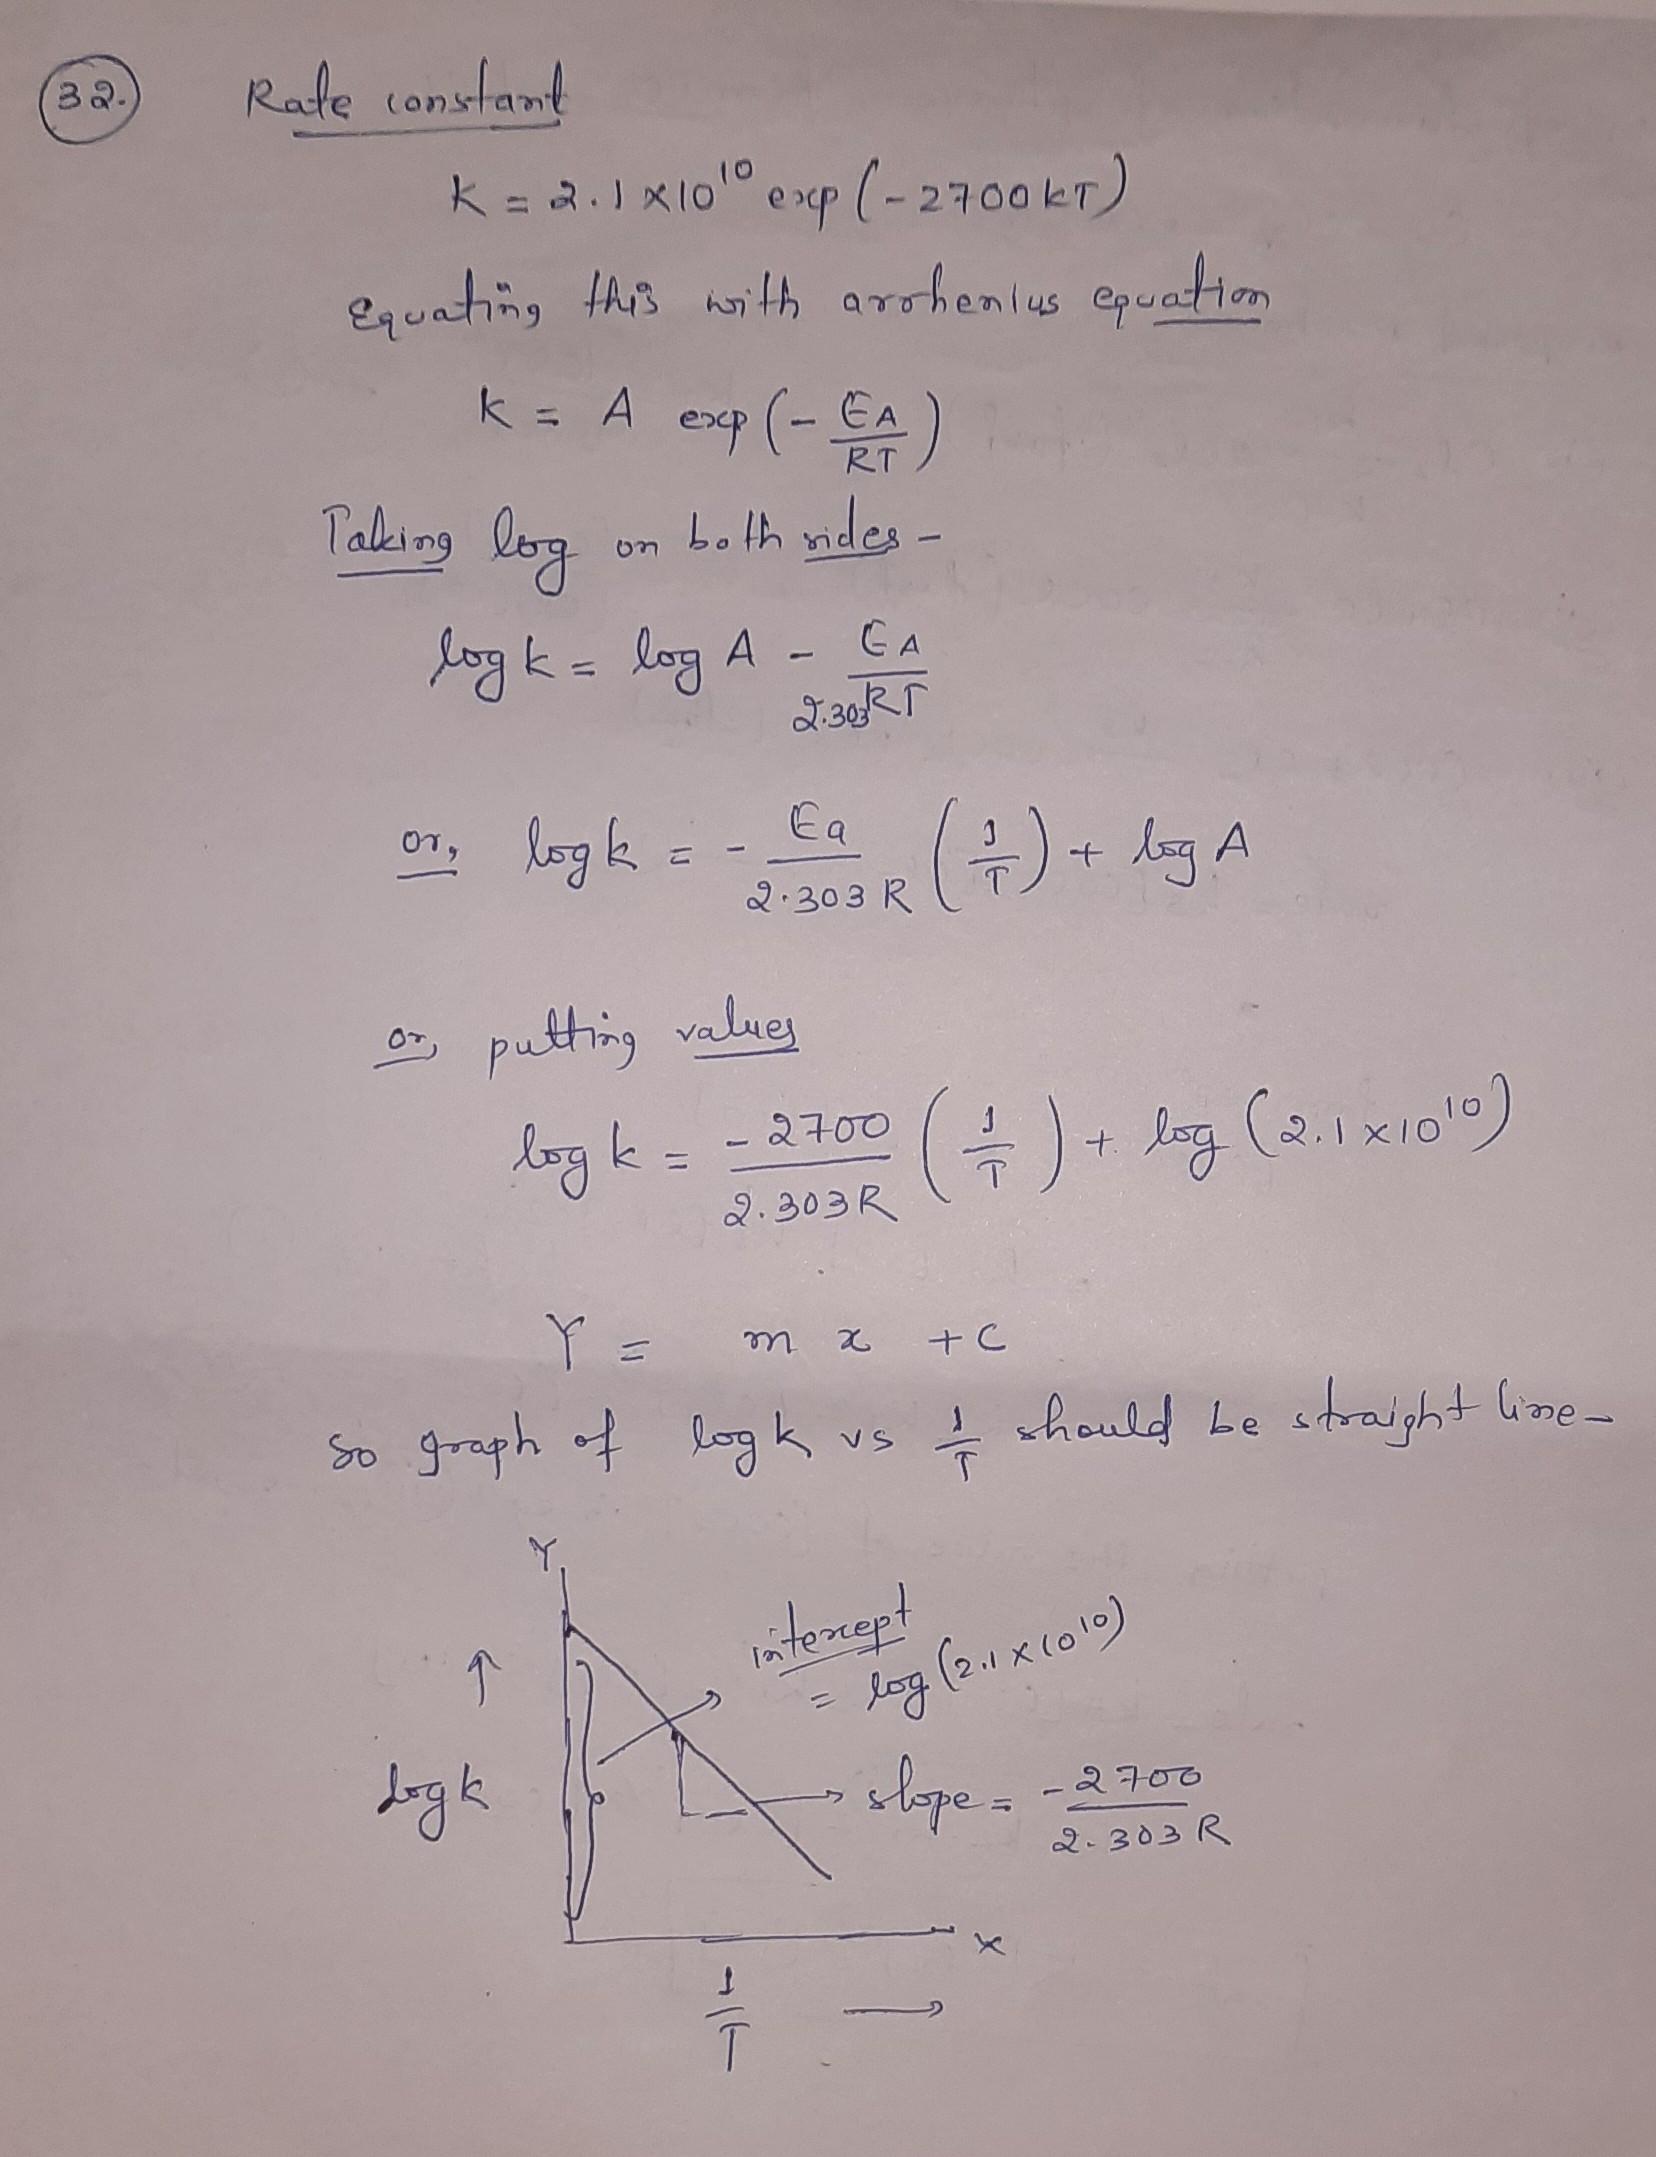 32. Rate constant
K = 2.1 × 10¹⁰ exp (-2700 kT)
Equating this with arrhenius equation
K = A exp (- EA / RT)
Taking log on both sides -
log k = log A - EA / 2.303 RT
or, log k = - Ea / 2.303 R (1/T) + log A
or, putting values
log k = - 2700 / 2.303 R (1/T) + log (2.1 × 10¹⁰)
Y = m x + C
so graph of log k vs 1/T should be straight line -
Y
intercept
= log (2.1 × 10¹⁰)
↑
log k
→ slope = - 2700 / 2.303 R
X
1/T →